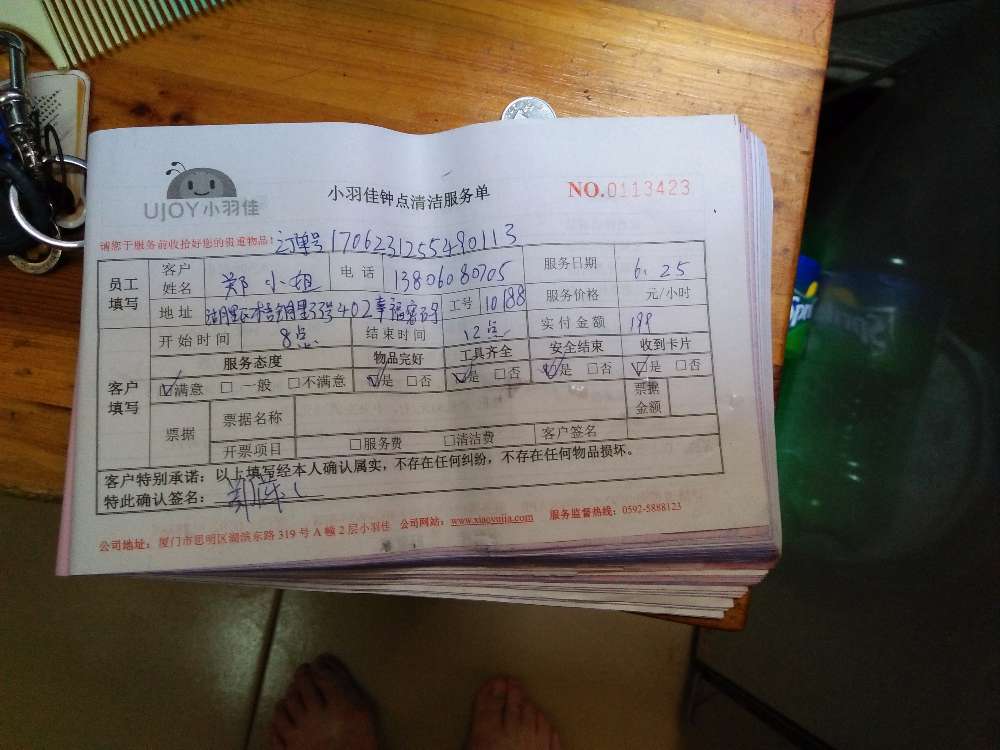 UJOY小羽佳
小羽佳钟点清洁服务单
NO.0113423
请您于服务前收拾好您的贵重物品！ 订单号 1706231255490113
员工填写 客户姓名 郑小姐 电话 13806080705 服务日期 6.25
地址 33号402 工号 10188 服务价格 元/小时
开始时间 8点 结束时间 12点 实付金额 199
客户填写 服务态度 物品完好 工具齐全 安全结束 收到卡片
☑满意 □一般 □不满意 ☑是 □否 ☑是 □否 ☑是 □否 ☑是 □否
票据 票据名称 票据金额
开票项目 □服务费 □清洁费 客户签名
客户特别承诺：以上填写经本人确认属实，不存在任何纠纷，不存在任何物品损坏。
特此确认签名：
公司地址：厦门市思明区湖滨东路 319 号 A 幢 2 层小羽佳 公司网站：www.xiaoyujia.com 服务监督热线：0592-5888123